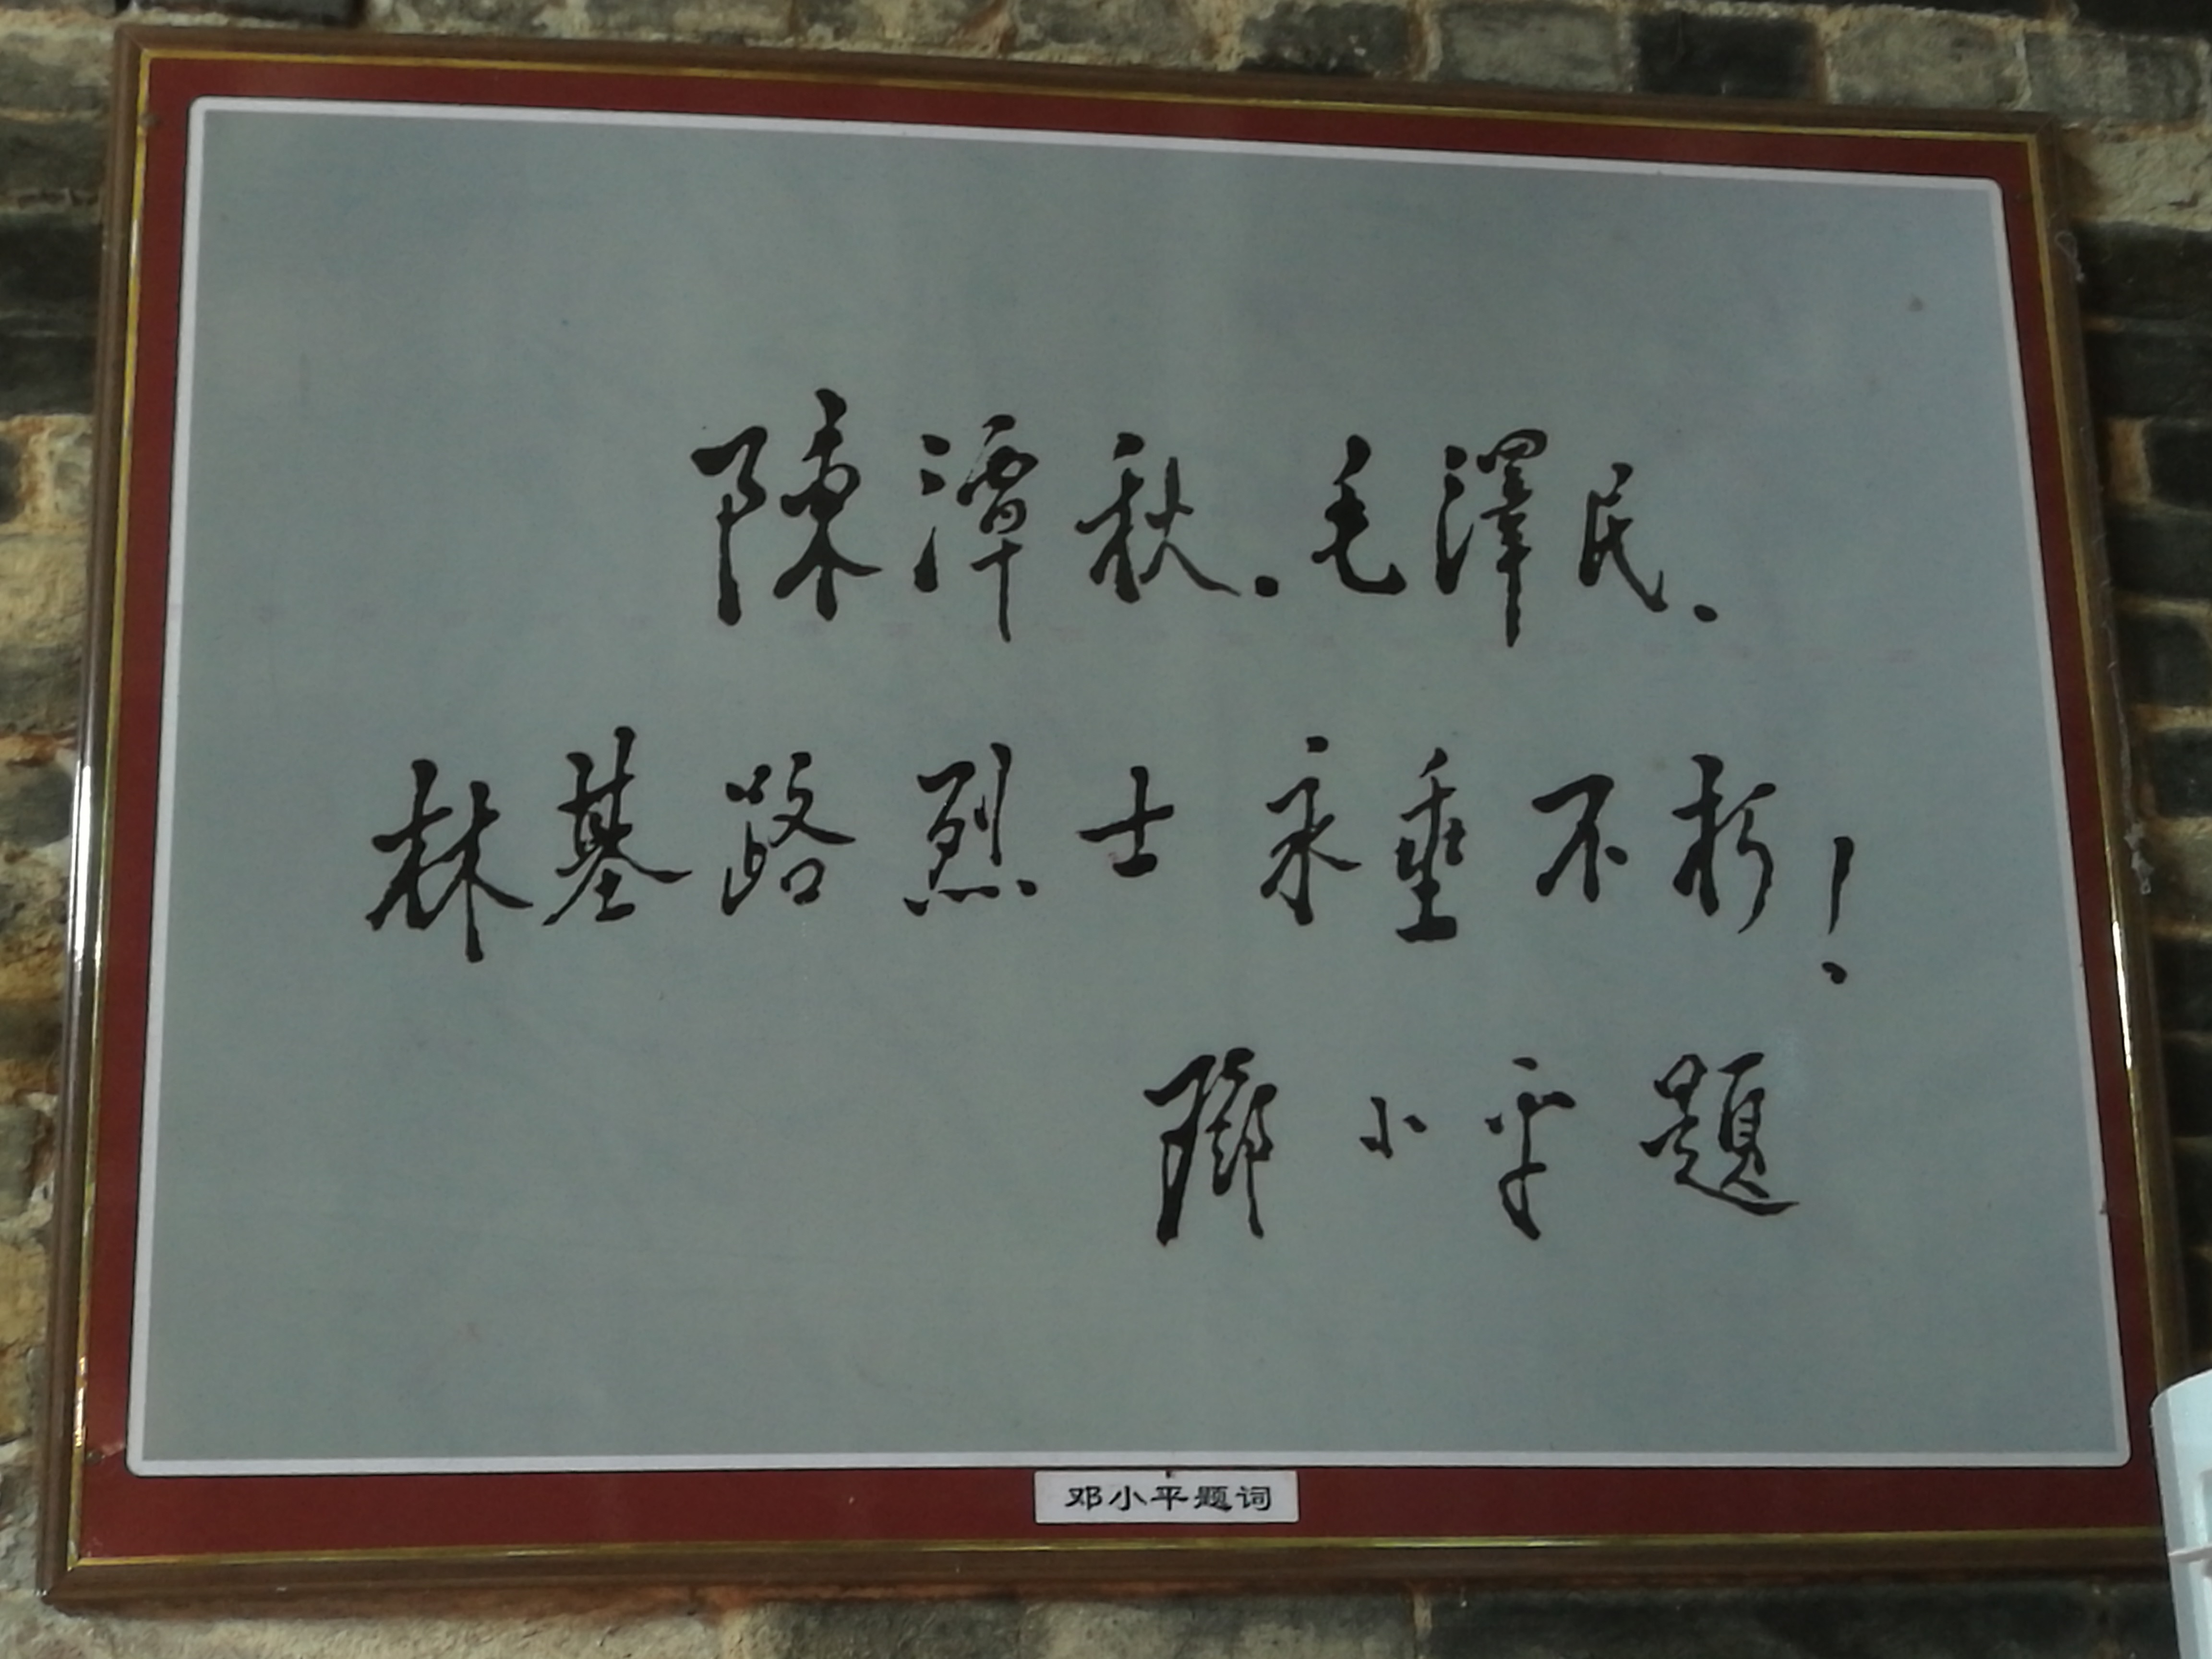 陳潭秋.毛澤民.
林基路烈士永垂不朽!
鄧小平題
邓小平题词